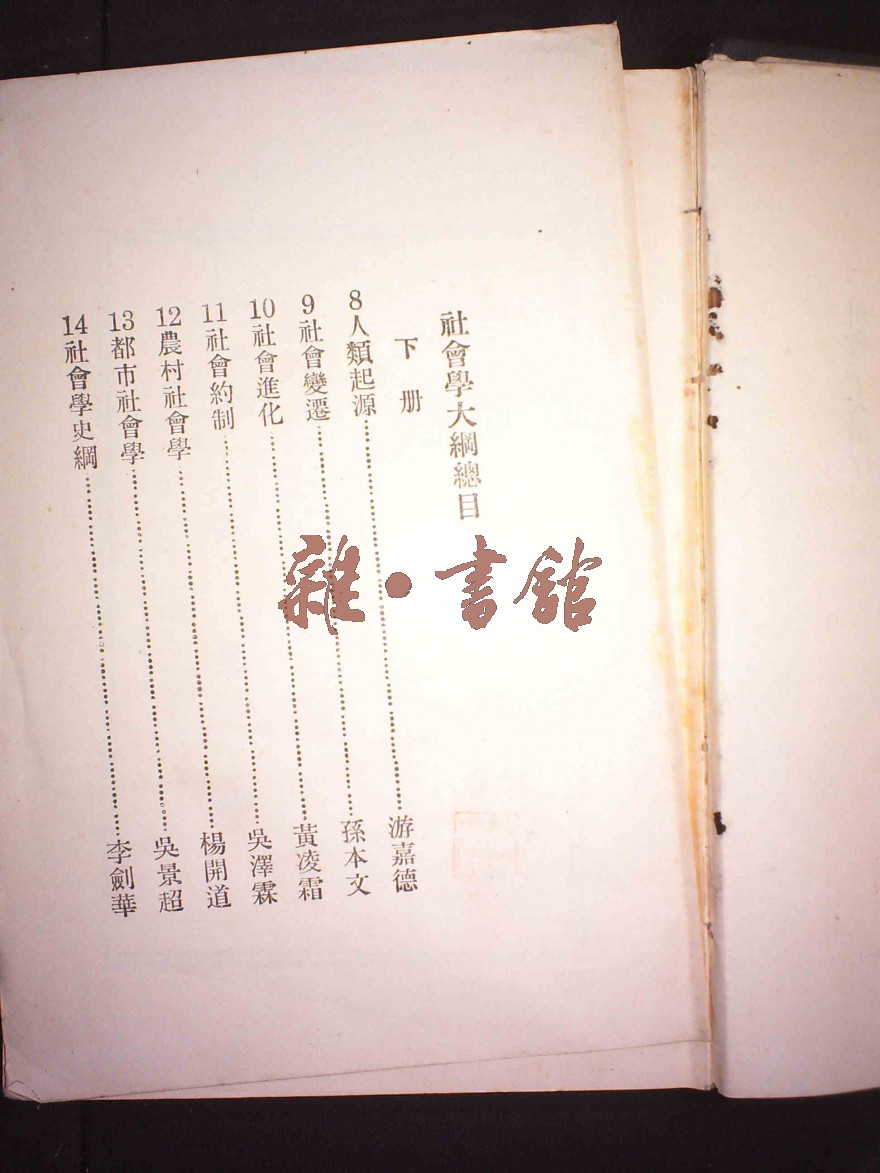 社會學大綱總目
下册
8人類起源……游嘉德
9社會變遷……孫本文
10社會進化……黃凌霜
11社會約制……吳澤霖
12農村社會學……楊開道
13都市社會學……吳景超
14社會學史綱……李劍華
雜·書館